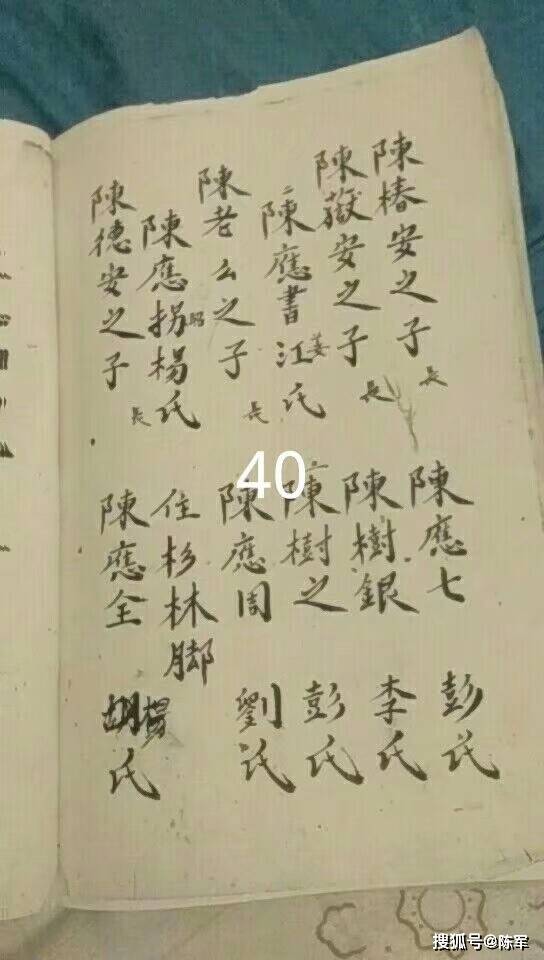 陳椿安之子 長 陳應七 彭氏
陳嶽安之子 長 陳樹銀 李氏
二 陳應書 江氏 姜 二 陳樹之 彭氏
陳老么之子 長 陳應周 劉氏
陳應拐 楊氏 昭 住杉林脚
陳德安之子 長 陳應全 胡氏 楊
40
搜狐号@陈军